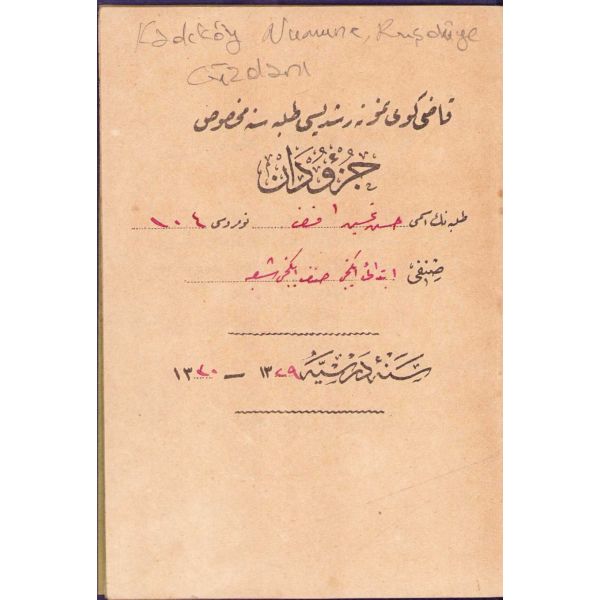 Kadıköy Numune, Ruşdiye
Cüzdanı
قاضی کوی نمونه رشدیسی طلبه سنه مخصوص
جُزْؤُدَانْ
طلبه نك اسمی حسن تحسین افندی نومروسی ١٠٤
صِنفی ابتدائی ایکنجی صنف ایکنجی شعبه
سَنَهٔ دَرْسِیَّه ١٣٢٩ — ١٣٣٠